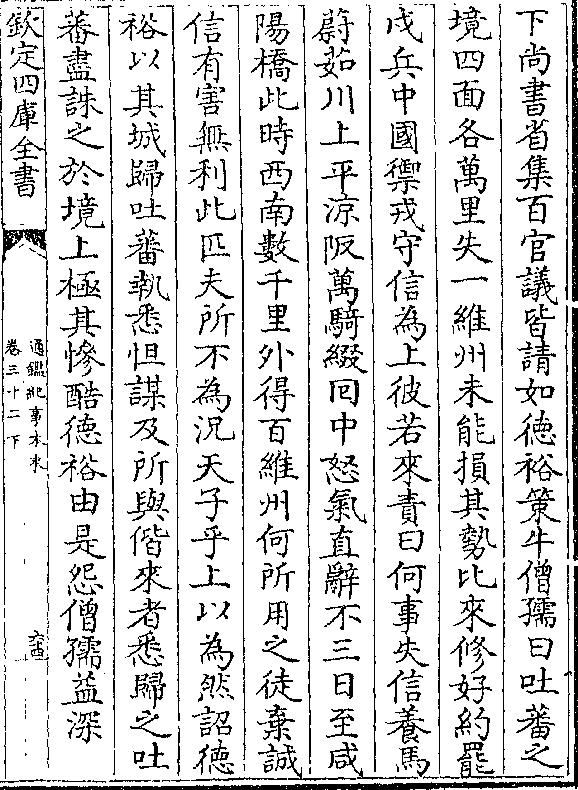 下尚書省集百官議皆請如德裕策牛僧孺曰吐蕃之
境四面各萬里失一維州未能損其勢比來修好約罷
戍兵中國禦戎守信為上彼若來責曰何事失信養馬
蔚茹川上平涼阪萬騎綴回中怒氣直辭不三日至咸
陽橋此時西南數千里外得百維州何所用之徒棄誠
信有害無利此匹夫所不為況天子乎上以為然詔德
裕以其城歸吐蕃執悉怛謀及所與偕來者悉歸之吐
蕃盡誅之於境上極其慘酷德裕由是怨僧孺益深
欽定四庫全書
通鑑紀事本末
卷三十二下